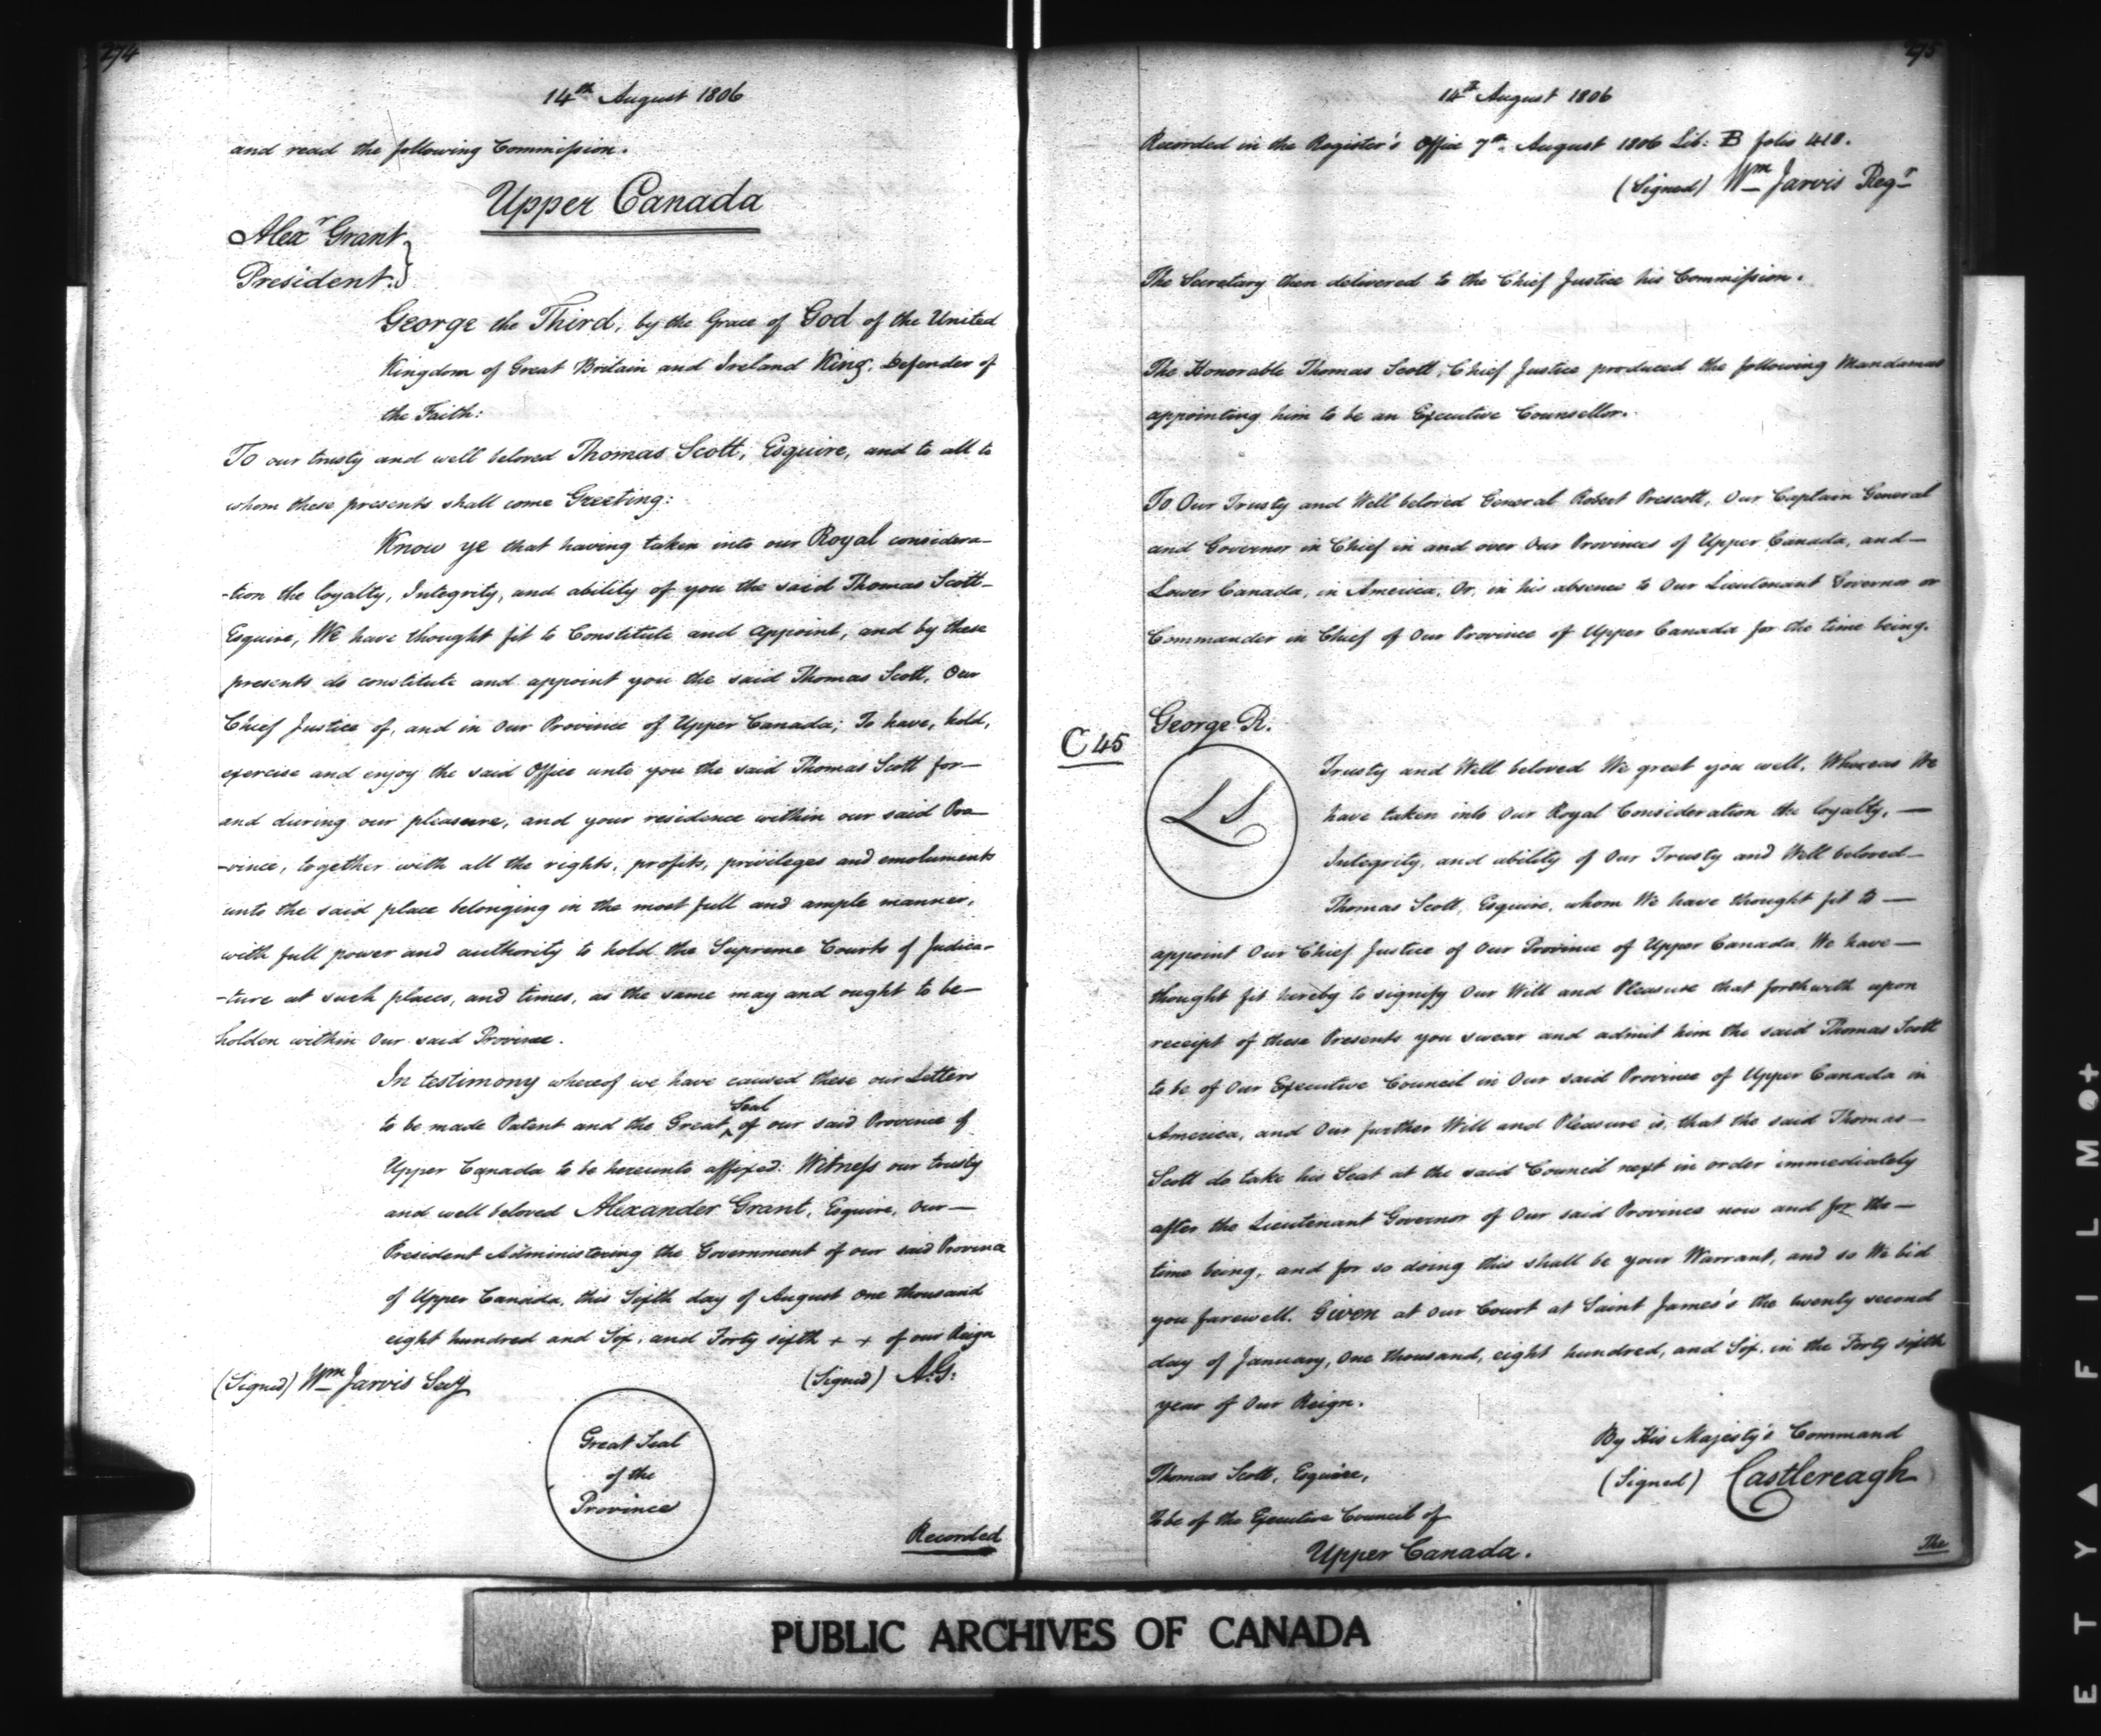 274
14th August 1806
and read the following Commission.
Upper Canada
Alexr Grant
President.
George the Third, by the Grace of God of the United
Kingdom of Great Britain and Ireland King, Defender of
the Faith:
To our trusty and well beloved Thomas Scott, Esquire, and to all to
whom these presents shall come Greeting:
Know ye that having taken into our Royal considera-
-tion the loyalty, Integrity, and ability of you the said Thomas Scott-
Esquire, We have thought fit to Constitute and appoint, and by these
presents do constitute and appoint you the said Thomas Scott, Our
Chief Justice of, and in Our Province of Upper Canada; To have, hold,
exercise and enjoy the said Office unto you the said Thomas Scott for-
and during our pleasure, and your residence within our said Pro-
-vince, together with all the rights, profits, privileges and emoluments
unto the said place belonging in the most full and ample manner,
with full power and authority to hold the Supreme Courts of Judica-
-ture at such places, and times, as the same may and ought to be-
holden within Our said Province.
In testimony whereof we have caused these our Letters
to be made Patent and the Great Seal of our said Province of
Upper Canada to be hereunto affixed: Witness our trusty
and well beloved Alexander Grant, Esquire, Our-
President Administering the Government of our said Province
of Upper Canada, this Sixth day of August One thousand
eight hundred and Six, and Forty sixth + + of our Reign
(Signed) Wm Jarvis Secy
(Signed) A.G:
Great Seal
of the
Province
Recorded
275
14th August 1806
Recorded in the Register's Office 7th August 1806 Lib: B folio 418.
(Signed) Wm Jarvis Regr
The Secretary then delivered to the Chief Justice his Commission.
The Honorable Thomas Scott, Chief Justice produced the following Mandamus
appointing him to be an Executive Counsellor.
To Our Trusty and Well beloved General Robert Prescott, Our Captain General
and Governor in Chief in and over Our Provinces of Upper Canada, and-
Lower Canada, in America, Or, in his absence to Our Lieutenant Governor or
Commander in Chief of Our Province of Upper Canada for the time being.
George R.
C 45
L S
Trusty and Well beloved We greet you well. Whereas We
have taken into Our Royal Consideration the loyalty, -
Integrity, and ability of Our Trusty and Well beloved-
Thomas Scott, Esquire, whom We have thought fit to -
appoint Our Chief Justice of Our Province of Upper Canada, We have-
thought fit hereby to signify Our Will and Pleasure that forthwith upon
receipt of these Presents you swear and admit him the said Thomas Scott
to be of Our Executive Council in Our said Province of Upper Canada in
America, and Our further Will and Pleasure is, that the said Thomas-
Scott do take his Seat at the said Council next in order immediately
after the Lieutenant Governor of Our said Province now and for the-
time being, and for so doing this shall be your Warrant, and so We bid
you farewell. Given at Our Court at Saint James's the twenty second
day of January, One thousand, eight hundred, and Six, in the Forty sixth
year of Our Reign.
By His Majesty's Command
(Signed) Castlereagh
Thomas Scott, Esquire,
To be of the Executive Council of
Upper Canada.
The
PUBLIC ARCHIVES OF CANADA
E T Y ▲ F I L M ●+